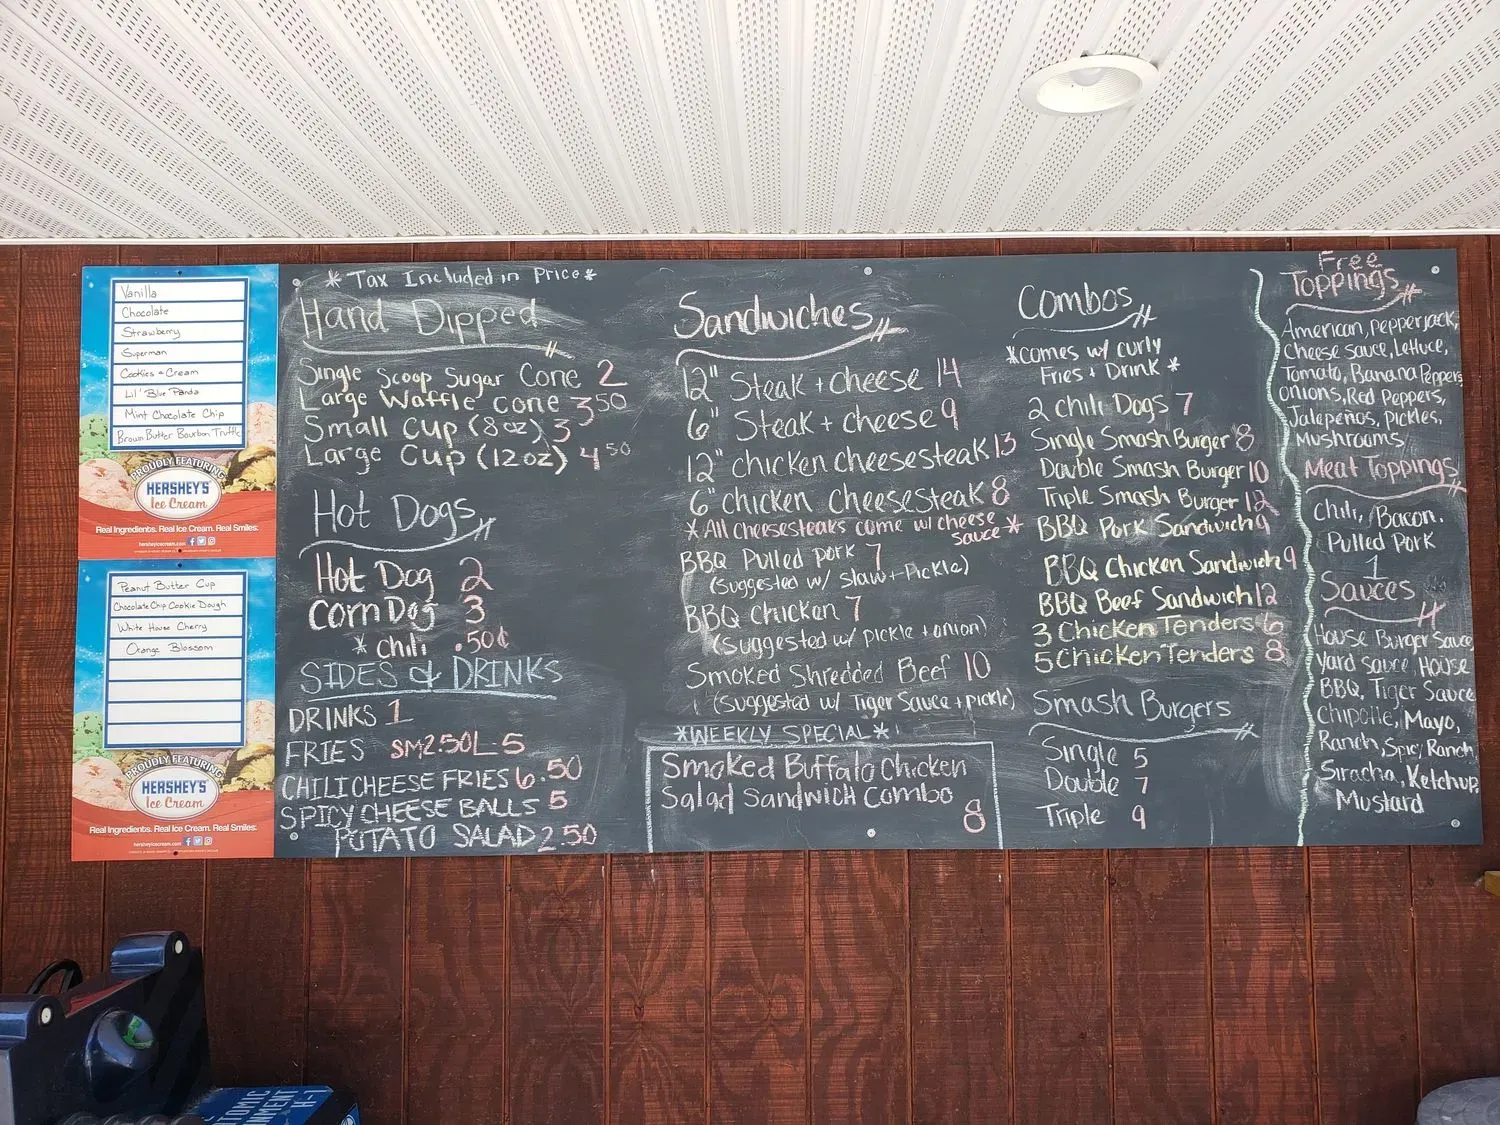 Vanilla
Chocolate
Strawberry
Superman
Cookies & Cream
Lil' Blue Panda
Mint Chocolate Chip
Brown Butter Bourbon Truffle
PROUDLY FEATURING
HERSHEY'S
Ice Cream
Real Ingredients. Real Ice Cream. Real Smiles.
hersheyicecream.com
Peanut Butter Cup
Chocolate Chip Cookie Dough
White House Cherry
Orange Blossom
PROUDLY FEATURING
HERSHEY'S
Ice Cream
Real Ingredients. Real Ice Cream. Real Smiles.
hersheyicecream.com
* Tax Included in Price *
Hand Dipped
Single Scoop Sugar Cone 2
Large Waffle Cone 3 50
Small Cup (8oz) 3
Large Cup (12oz) 4 50
Hot Dogs
Hot Dog 2
Corn Dog 3
* chili .50¢
SIDES & DRINKS
DRINKS 1
FRIES SM 2.50 L 5
CHILI CHEESE FRIES 6.50
SPICY CHEESE BALLS 5
POTATO SALAD 2.50
Sandwiches
12" Steak + cheese 14
6" Steak + cheese 9
12" chicken cheesesteak 13
6" chicken cheesesteak 8
* All cheesesteaks come w/ cheese sauce *
BBQ Pulled pork 7
(suggested w/ slaw + Pickle)
BBQ Chicken 7
(suggested w/ pickle + onion)
Smoked Shredded Beef 10
(suggested w/ Tiger Sauce + pickle)
*WEEKLY SPECIAL*
Smoked Buffalo Chicken
Salad Sandwich Combo
8
Combos
*comes w/ curly
Fries + Drink *
2 chili Dogs 7
Single Smash Burger 8
Double Smash Burger 10
Triple Smash Burger 12
BBQ Pork Sandwich 9
BBQ Chicken Sandwich 9
BBQ Beef Sandwich 12
3 Chicken Tenders 6
5 Chicken Tenders 8
Smash Burgers
Single 5
Double 7
Triple 9
Free
Toppings
American, pepperjack,
Cheese sauce, Lettuce,
Tomato, Banana Peppers
onions, Red Peppers,
Jalepeños, Pickles,
Mushrooms
Meat Toppings
Chili, Bacon,
Pulled Pork
1
Sauces
House Burger Sauce
Yard sauce, House
BBQ, Tiger Sauce
Chipotle, Mayo,
Ranch, Spicy Ranch
Siracha, Ketchup,
Mustard